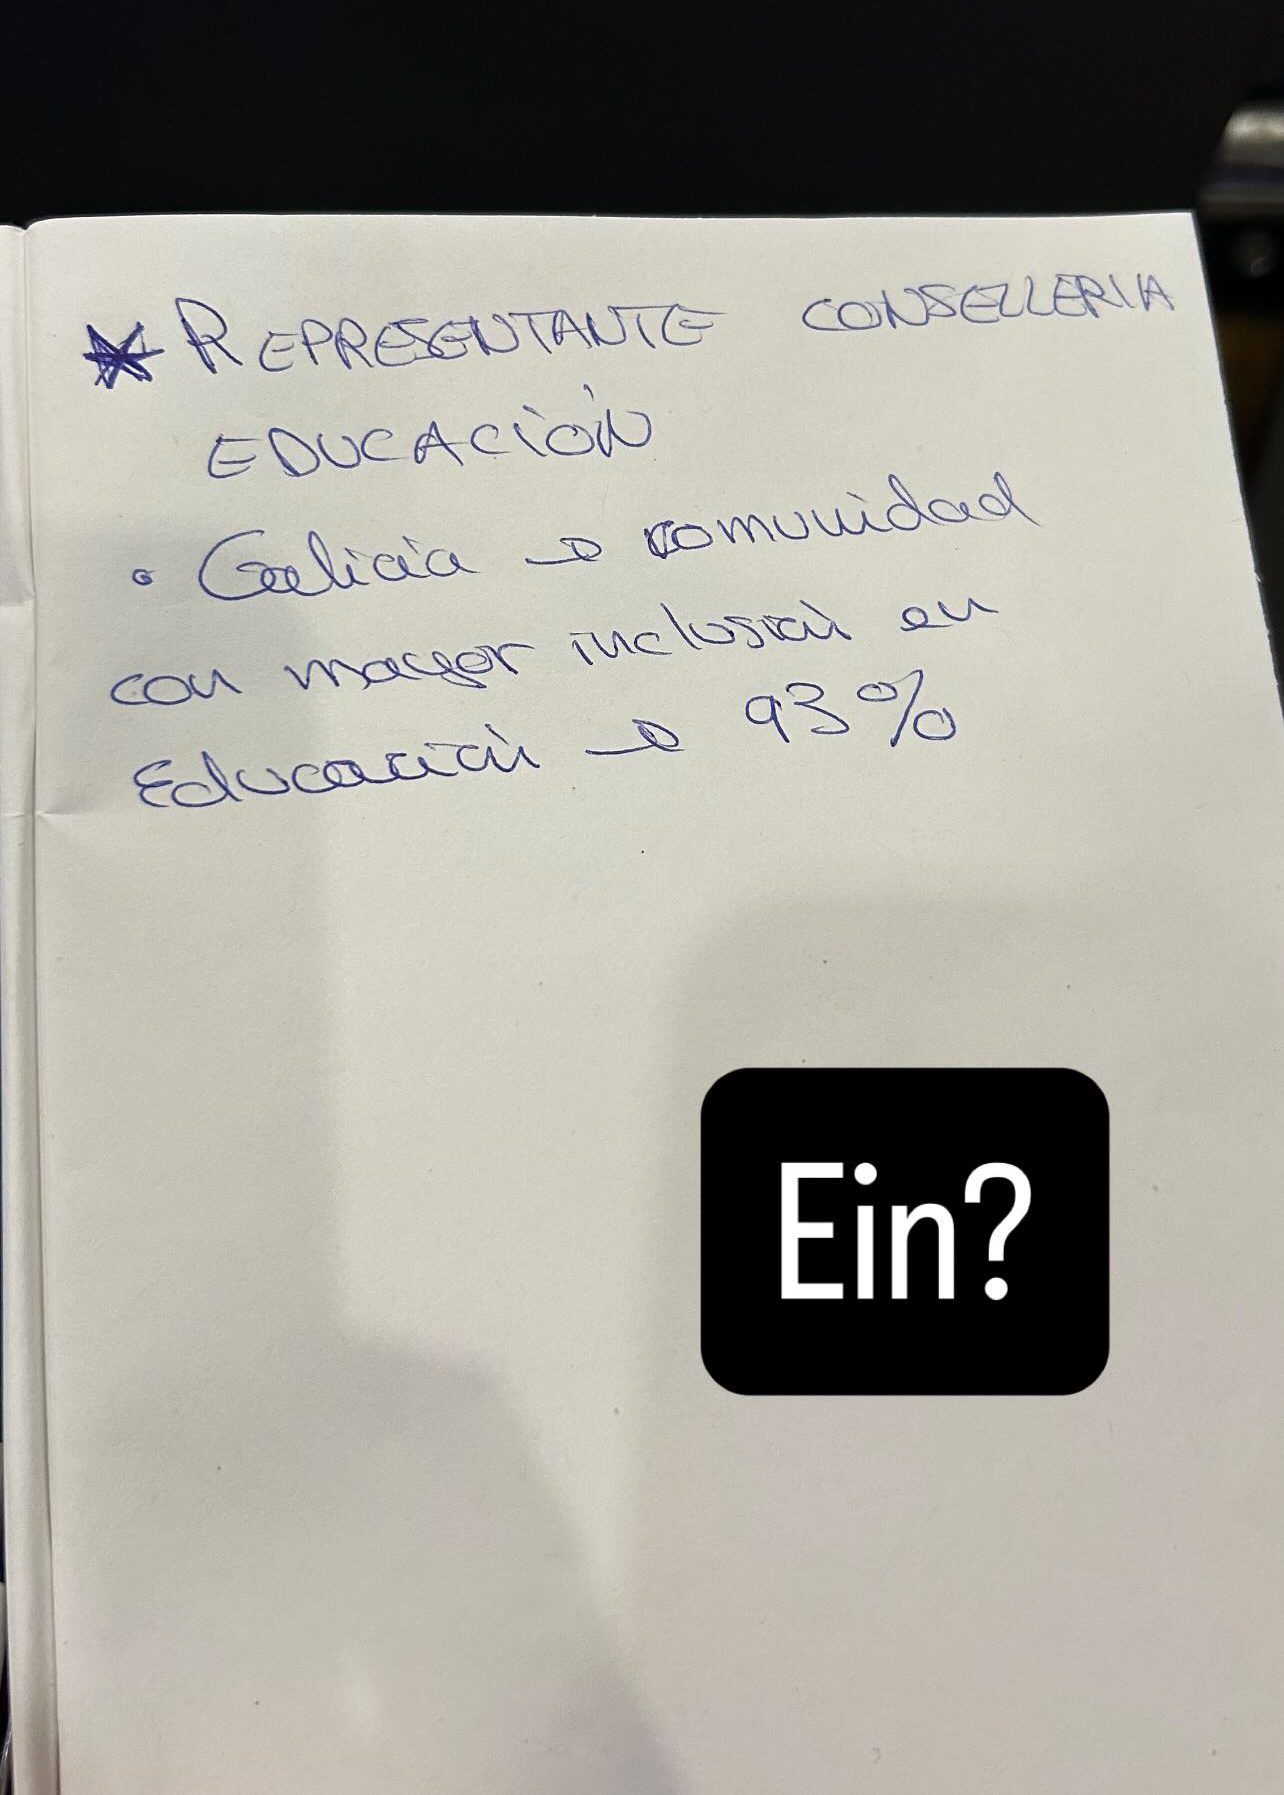 * REPRESENTANTE CONSELLERIA
EDUCACIÓN
• Galicia → comunidad
con mayor inclusión en
Educación → 93%
Ein?